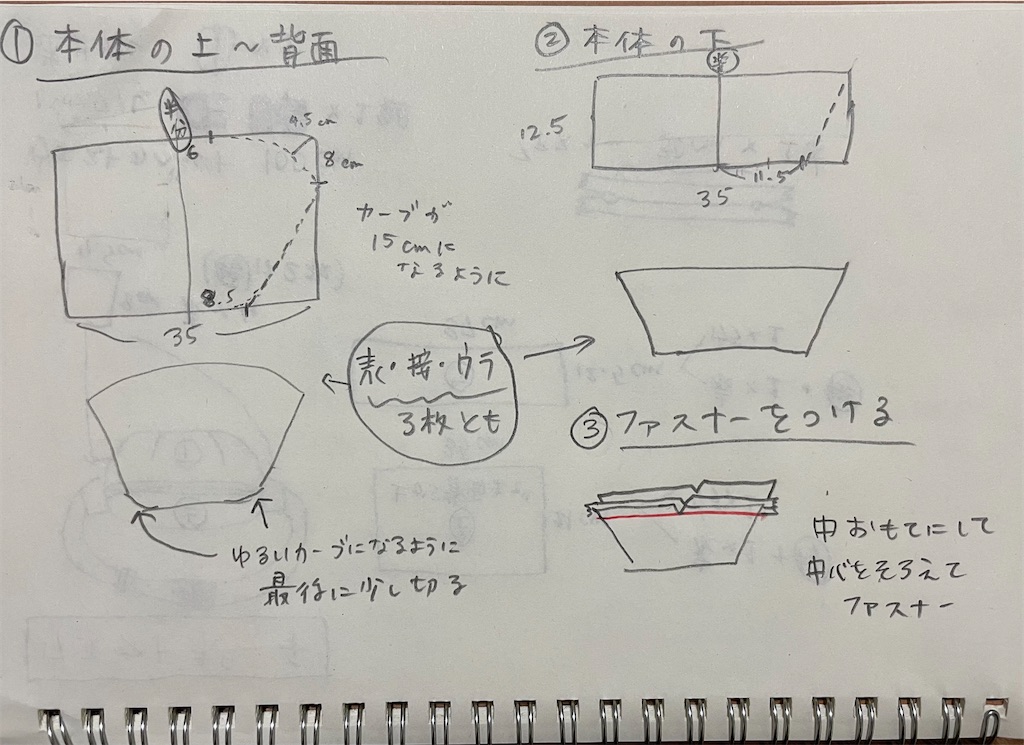 ① 本体の上～背面
半分
6
4.5cm
8cm
カーブが
15cmに
なるように
8.5
35
表・接・ウラ
3枚とも
ゆるいカーブになるように
最後に少し切る
② 本体の下
半
12.5
11.5
35
③ ファスナーをつける
中おもてにして
中心をそろえて
ファスナー